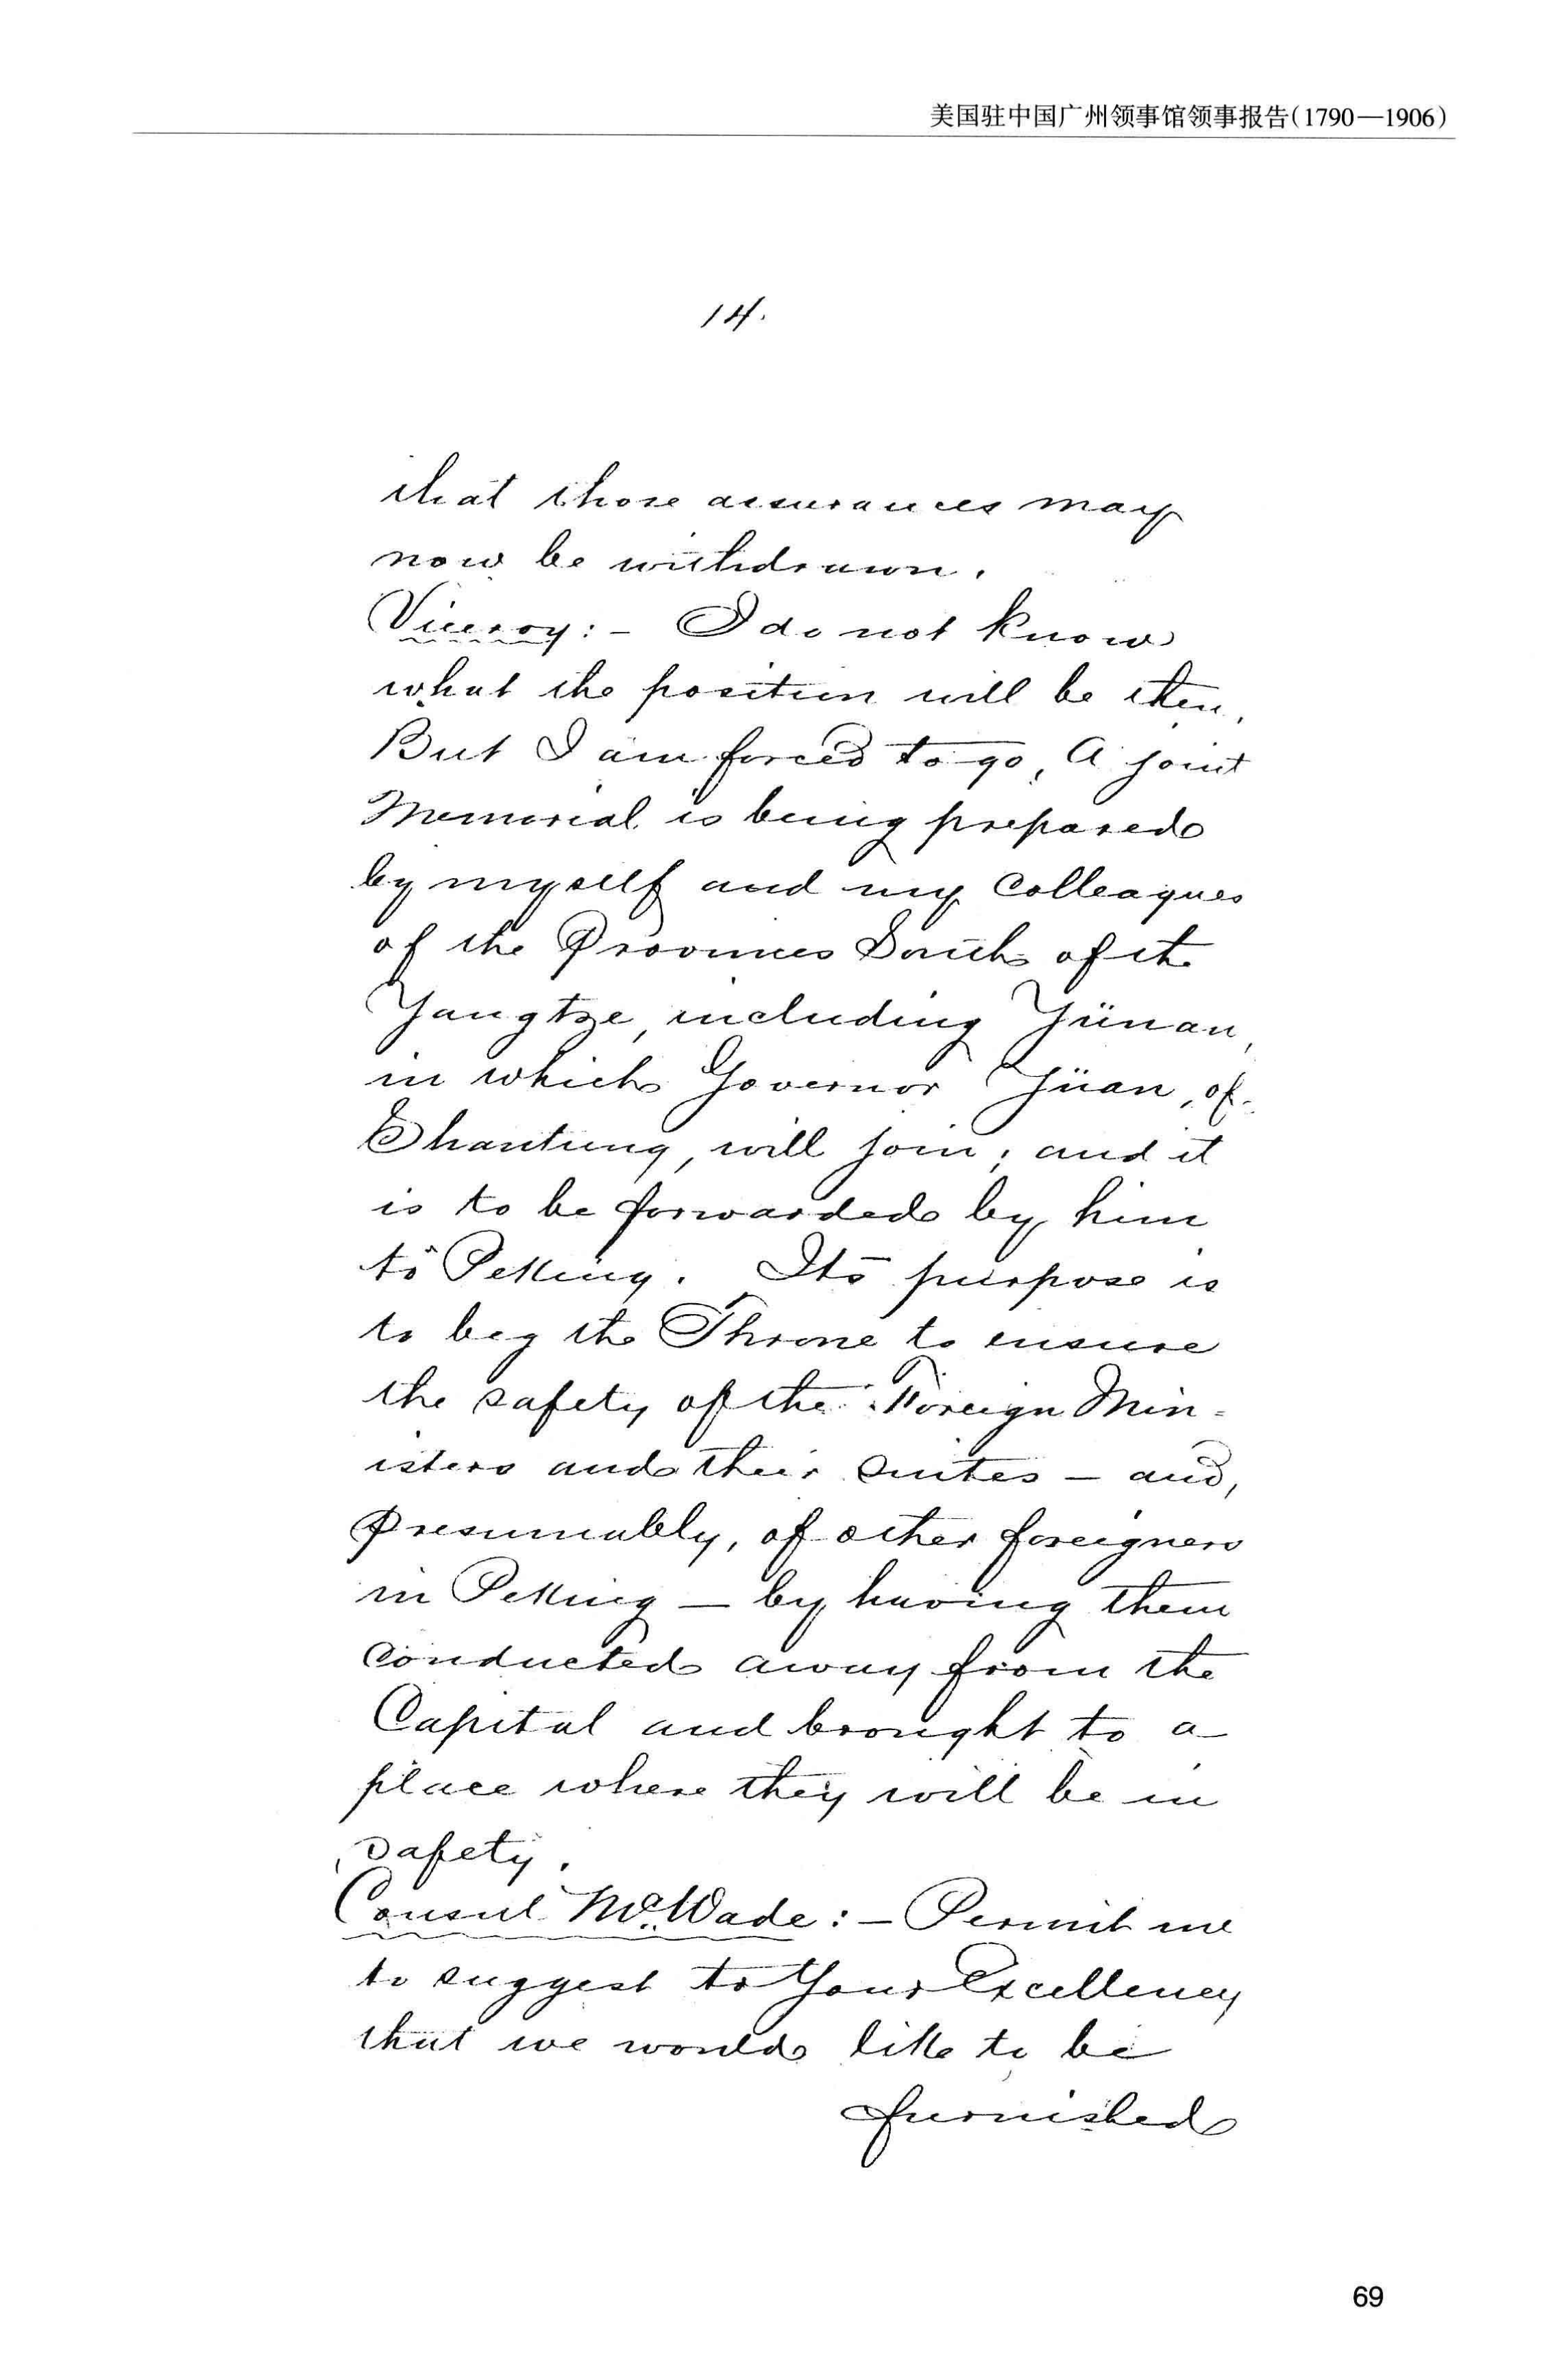 美国驻中国广州领事馆领事报告(1790—1906)
14.
that those assurances may
now be withdrawn.
Viceroy:- I do not know
what the position will be then.
But I am forced to go. A joint
Memorial is being prepared
by myself and my Colleagues
of the Provinces South of the
Yangtze, including Yünan,
in which Governor Yüan, of
Shantung, will join; and it
is to be forwarded by him
to Peking. Its purpose is
to beg the Throne to ensure
the safety of the Foreign Min-
isters and their Suites - and,
Presumably, of other foreigners
in Peking - by having them
Conducted away from the
Capital and brought to a
place where they will be in
safety.
Consul McWade:- Permit me
to suggest to Your Excellency
that we would like to be
furnished
69